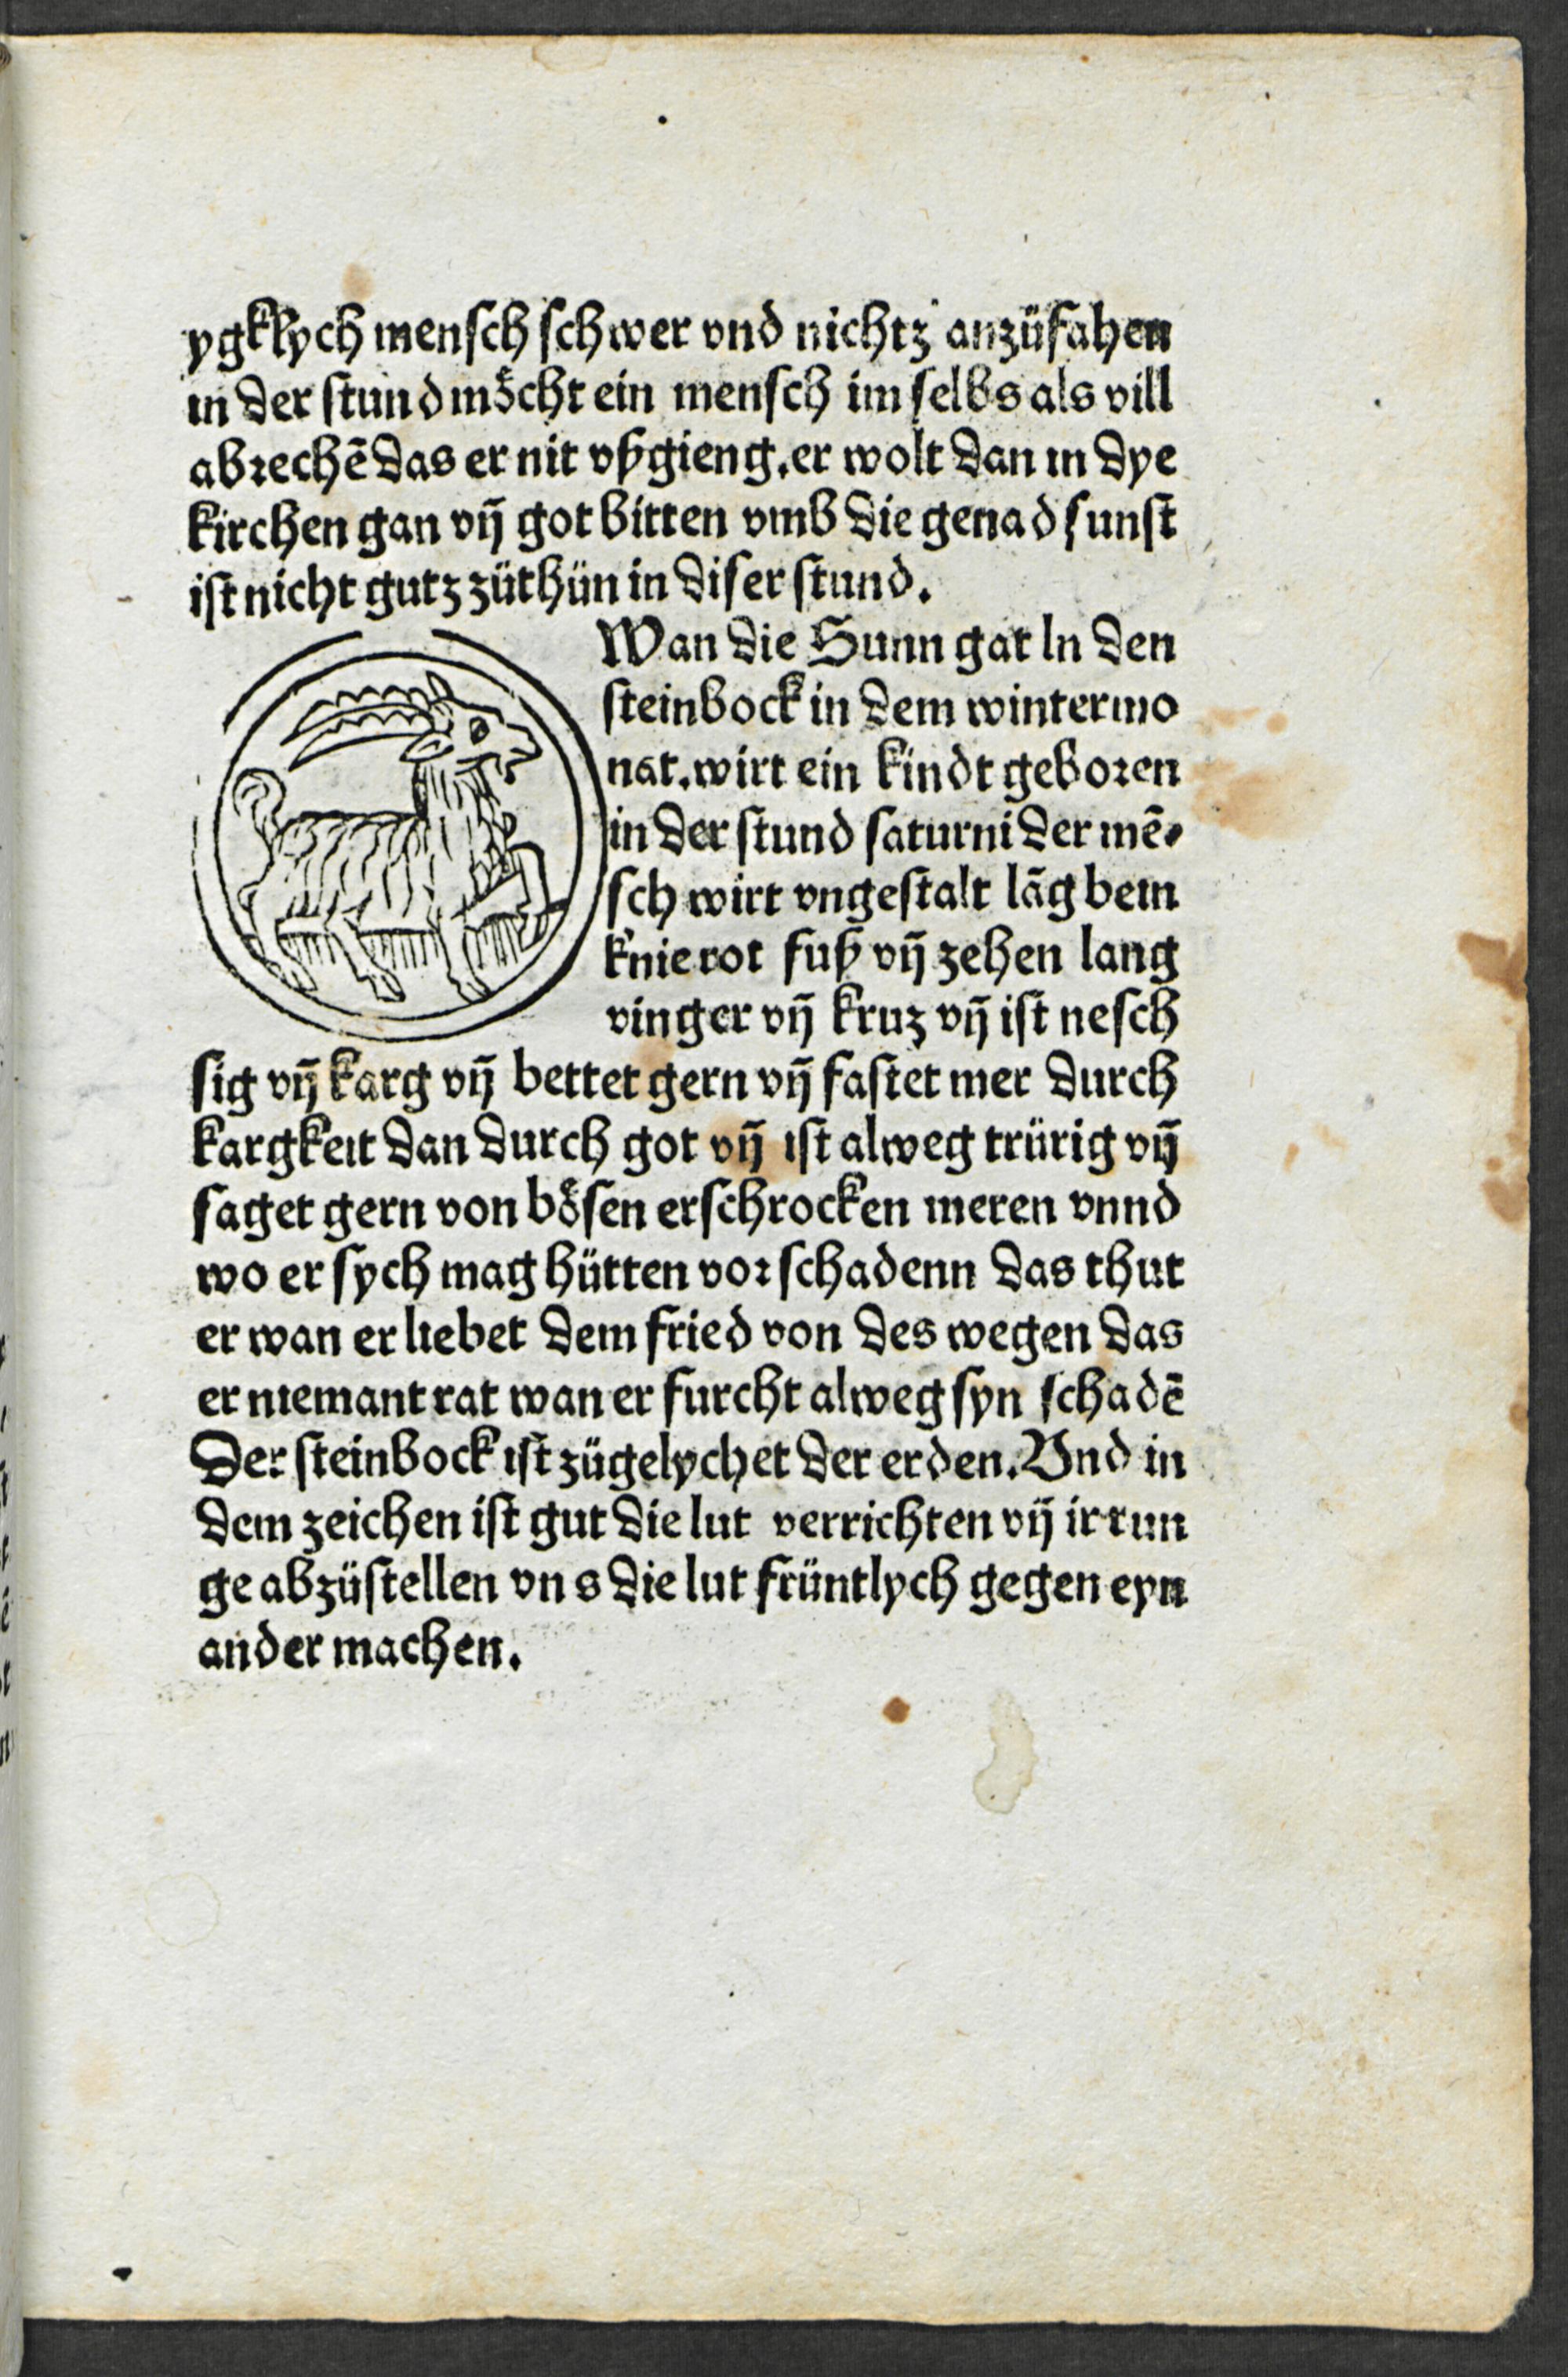 ygklych mensch schwer vnd nichtz anzüfahen
in der stund möcht ein mensch im selbs als vill
abrechē das er nit vßgieng. er wolt dan in dye
kirchen gan vñ got bitten vmb die genad sunst
ist nicht gutz züthün in diser stund.
Wan die Sunn gat ln den
steinbock in dem wintermo
nat. wirt ein kindt geboren
in der stund saturni der mē⸗
sch wirt vngestalt lāg bein
knie rot fuß vñ zehen lang
vinger vñ kruz vñ ist nesch
sig vñ karg vñ bettet gern vñ fastet mer durch
kargkeit dan durch got vñ ist alweg trürig vñ
saget gern von bösen erschrocken meren vnnd
wo er sych mag hütten vor schadenn das thut
er wan er liebet dem fried von des wegen das
er niemant rat wan er furcht alweg syn schadē
Der steinbock ist zügelychet der erden. Vnd in
dem zeichen ist gut die lut verrichten vñ irrun
ge abzüstellen vn s die lut früntlych gegen eyn
ander machen.